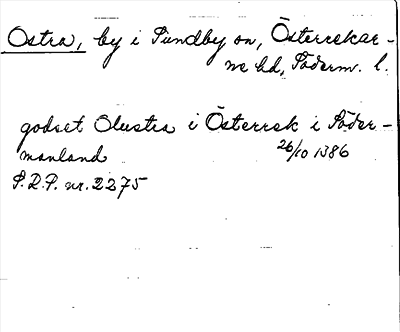 Ostra, by i Sundby sn, Österrekar-
ne hd, Söderm. l.
godset Olustra i Österrek i Söder-
manland 26/10 1386
S.R.P. nr. 2275